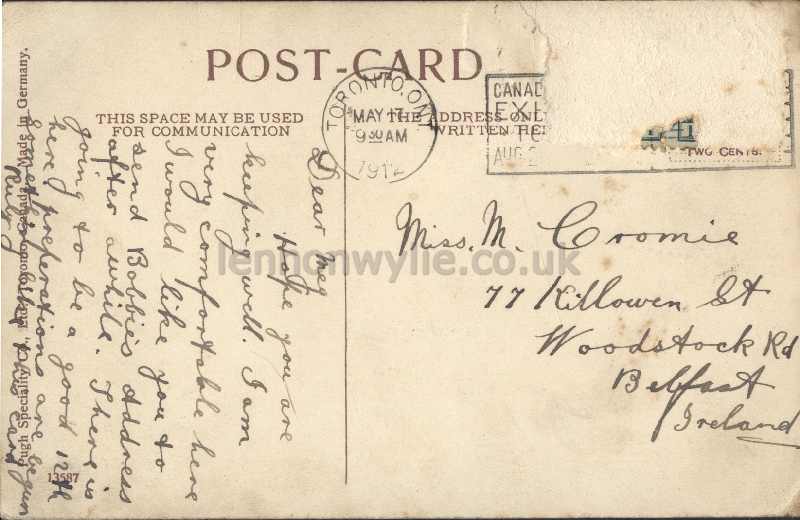 POST-CARD
THIS SPACE MAY BE USED
FOR COMMUNICATION
THE ADDRESS ONLY
WRITTEN HE
TORONTO, ONT
MAY 17
9 30 AM
1912
CANAD
EXH
TO
AUG. 2
TWO CENTS.
Dear Meg
Hope you are
keeping well. I am
very comfortable here
I would like you to
send Bobbie's address
after awhile. There is
going to be a good 12th
here preperations are begun
something like this card
Ruby
Miss. M. Cromie
77 Killowen St
Woodstock Rd
Belfast
Ireland
Pugh Speciality Co., Ltd. Toronto, Canada. Made in Germany.
13587
lennonwylie.co.uk